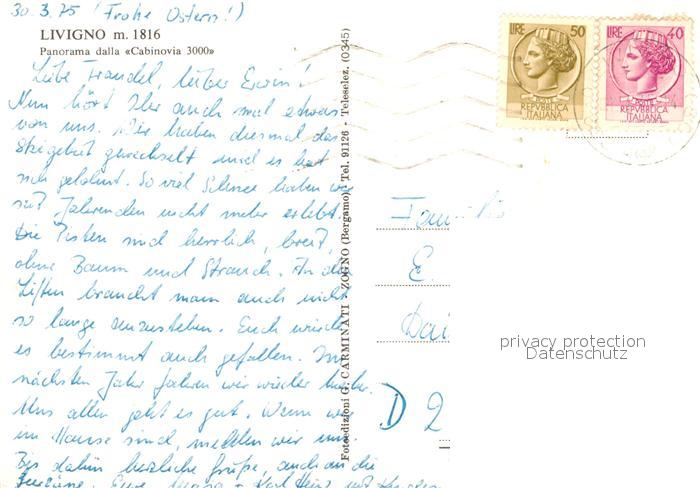 30.3.75 (Frohe Ostern!)
LIVIGNO m. 1816
Panorama dalla «Cabinovia 3000»
Liebe Traudel, lieber Erwin!
Nun hört Ihr auch mal etwas
von uns. Wir haben diesmal das
Skigebiet gewechselt und es hat
sich gelohnt. So viel Schnee haben wir
seit Jahrenden nicht mehr erlebt.
Die Pisten sind herrlich, breit,
ohne Baum und Strauch. An den
Liften braucht man auch nicht
so lange anzustehen. Euch würde
es bestimmt auch gefallen. Im
nächsten Jahr fahren wir wieder hierher.
Uns allen geht es gut. Wenn wir
im Hause sind, melden wir uns.
Bis dahin herzliche Grüße, auch an die
Eure
Fotoedizioni G. CARMINATI - ZOGNO (Bergamo) Tel. 91126 - Teleselez. (0345)
LIRE 50
POSTE
REPVBBLICA
ITALIANA
LIRE 40
POSTE
REPVBBLICA
ITALIANA
Familie
E.
D 2
privacy protection
Datenschutz